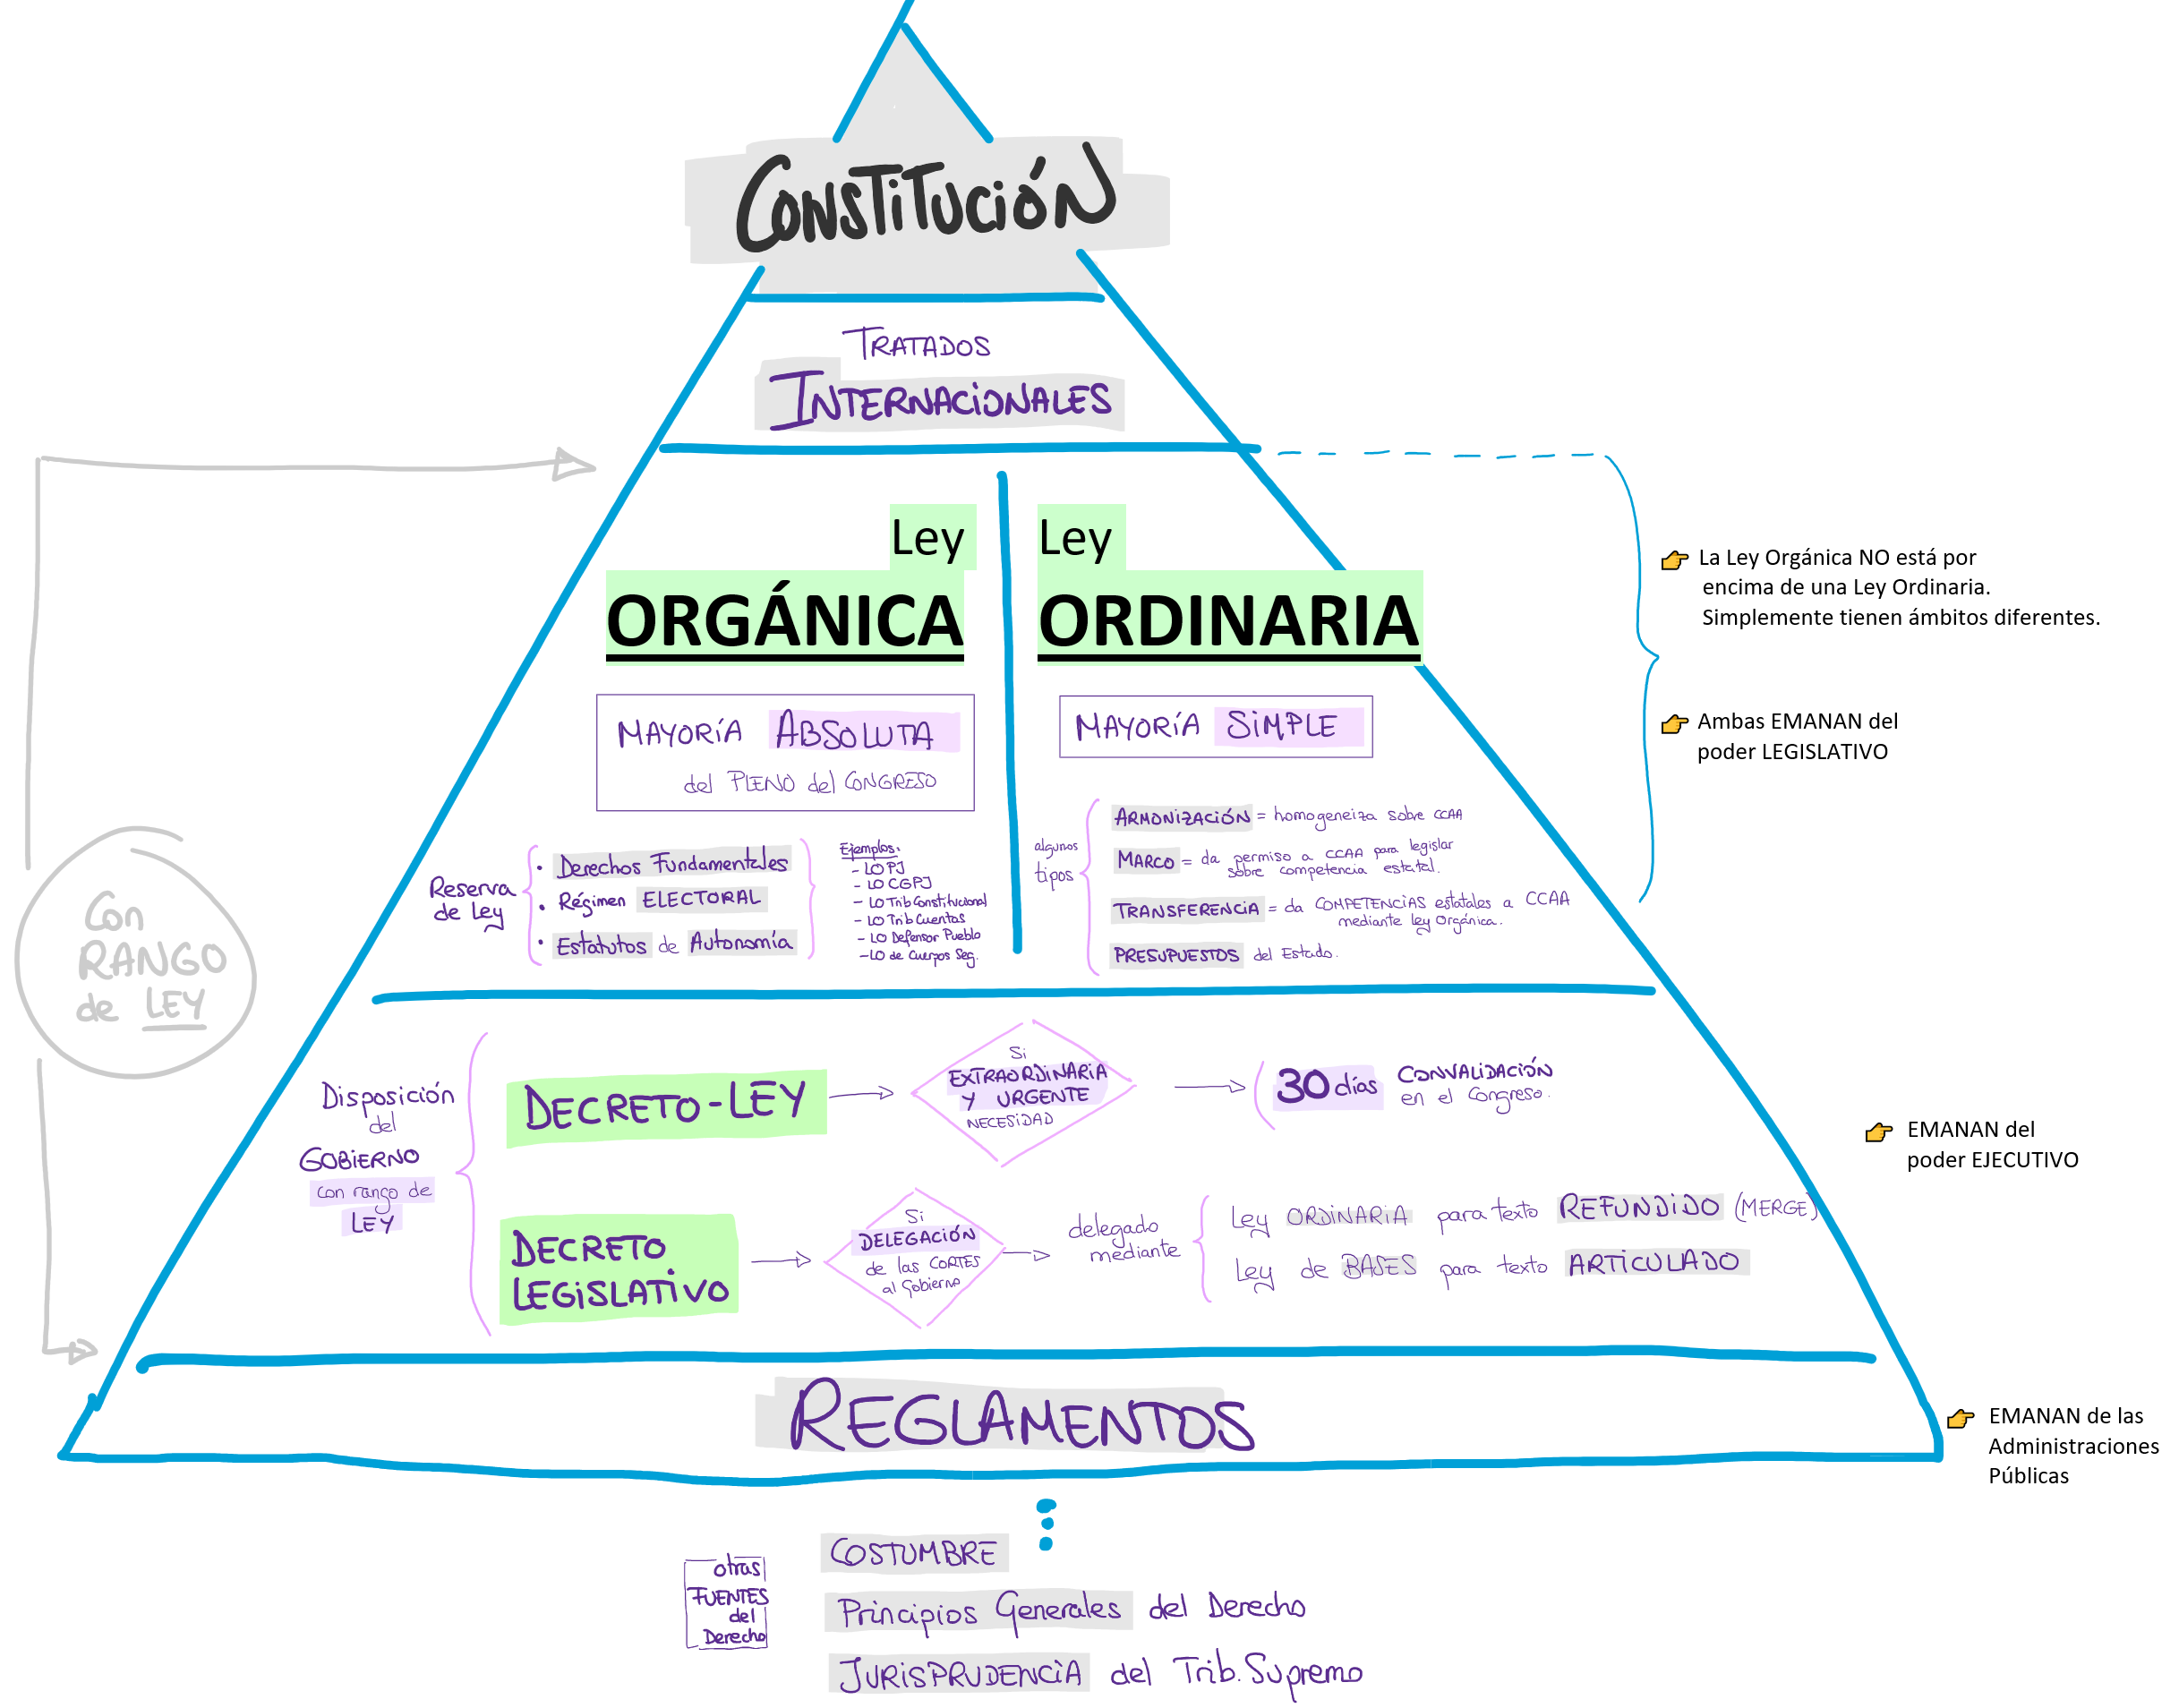 CONSTITUCIÓN
TRATADOS
INTERNACIONALES
Ley
ORGÁNICA
MAYORÍA ABSOLUTA
del PLENO del CONGRESO
Reserva
de Ley
• Derechos Fundamentales
• Régimen ELECTORAL
• Estatutos de Autonomía
Ejemplos:
- LO PJ
- LO CGPJ
- LO Trib Constitucional
- LO Trib Cuentas
- LO Defensor Pueblo
- LO de Cuerpos Seg.
Ley
ORDINARIA
MAYORÍA SIMPLE
algunos
tipos
ARMONIZACIÓN = homogeneiza sobre CCAA
MARCO = da permiso a CCAA para legislar
sobre competencia estatal.
TRANSFERENCIA = da COMPETENCIAS estatales a CCAA
mediante ley Orgánica.
PRESUPUESTOS del Estado.
👉 La Ley Orgánica NO está por
encima de una Ley Ordinaria.
Simplemente tienen ámbitos diferentes.
👉 Ambas EMANAN del
poder LEGISLATIVO
Con
RANGO
de LEY
Disposición
del
GOBIERNO
con rango de
LEY
DECRETO-LEY
Si
EXTRAORDINARIA
Y URGENTE
NECESIDAD
30 días CONVALIDACIÓN
en el Congreso.
DECRETO
LEGISLATIVO
Si
DELEGACIÓN
de las CORTES
al Gobierno
delegado
mediante
Ley ORDINARIA para texto REFUNDIDO (MERGE)
Ley de BASES para texto ARTICULADO
👉 EMANAN del
poder EJECUTIVO
REGLAMENTOS
👉 EMANAN de las
Administraciones
Públicas
otras
FUENTES
del
Derecho
COSTUMBRE
Principios Generales del Derecho
JURISPRUDENCIA del Trib. Supremo